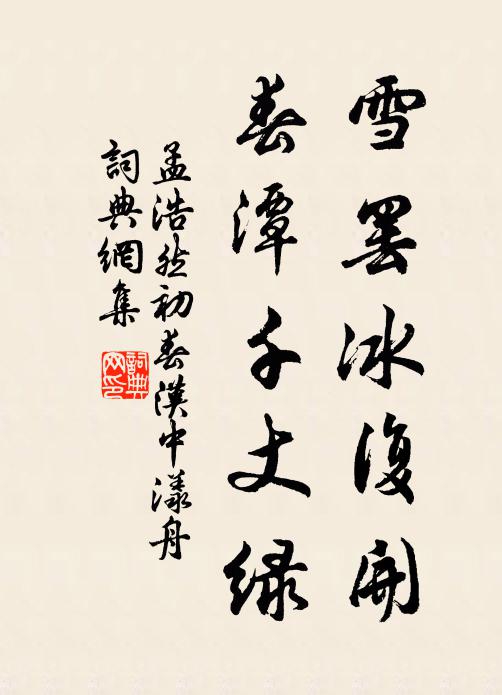 雪罢冰復開
春潭千丈绿
孟浩然初春漢中漾舟
詞典網集
詞典网印